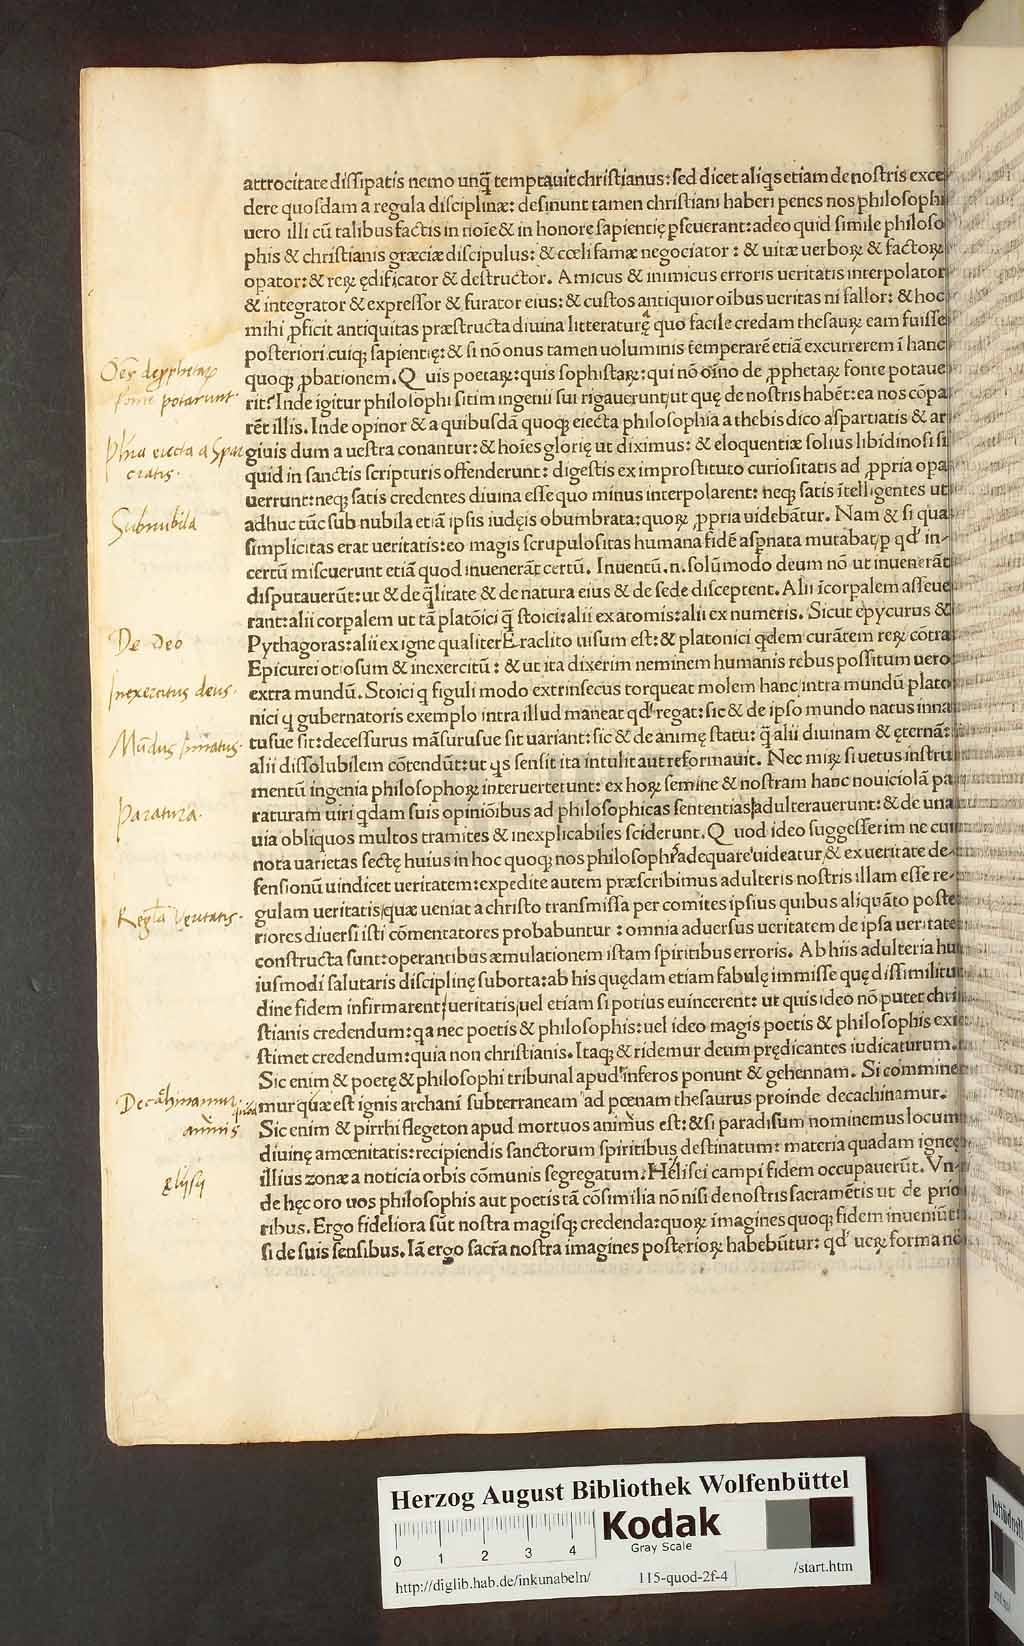 attrocitate dissipatis nemo unq̃ temptauit christianus: sed dicet aliq̃s etiam de nostris exce
dere quosdam a regula disciplinæ: desinunt tamen christiani haberi penes nos philosophi
uero illi cũ talibus factis in noĩe & in honore sapientię pseuerant: adeo quid simile philoso
phis & christianis græciæ discipulus: & cœli famæ negociator: & uitæ uerboꝝ & factoꝝ
opator: & reꝝ ędificator & destructor. Amicus & inimicus erroris ueritatis interpolator
& integrator & expressor & furator eius: & custos antiquior oĩbus ueritas ni fallor: & hoc
mihi ꝓficit antiquitas præstructa diuina litteraturę quo facile credam thesauꝝ eam fuisse
posteriori cuiqꝫ sapientię: & si nõ onus tamen uoluminis temperarẽ etiã excurrerem ĩ hanc
quoqꝫ ꝓbationem. Quis poetaꝝ: quis sophistaꝝ: qui nõ oĩno de ꝓphetaꝝ fonte potaue
rit? Inde igitur philosophi sitim ingenii sui rigauerunt/ut quę de nostris habẽt: ea nos cõpa
rẽt illis. Inde opinor & a quibusdã quoqꝫ eiecta philosophia a thebis dico aspartiatis & ar
giuis dum a uestra conantur: & hoĩes glorię ut diximus: & eloquentiæ solius libidinosi si
quid in sanctis scripturis offenderunt: digestis ex improstituto curiositatis ad ꝓpria opa
uerrunt: neqꝫ satis credentes diuina esse quo minus interpolarent: neqꝫ satis ĩtelligentes ut
adhuc tũc sub nubila etiã ipsis iudęis obumbrata: quoꝝ ꝓpria uidebãtur. Nam & si qua
simplicitas erat ueritatis: eo magis scrupulositas humana fidẽ aspnata mutabat/ꝑ qd' in-
certũ miscuerunt etiã quod inuenerãt certũ. Inuentũ.n.solũmodo deum nõ ut inuenerãt
disputauerũt: ut & de q̃litate & de natura eius & de sede disceptent. Alii ĩcorpalem asseue
rant: alii corpalem ut tã platõici q̃ stoici: alii ex atomis: alii ex numeris. Sicut epycurus &
Pythagoras: alii ex igne qualiter Eraclito uisum est: & platonici qdem curãtem reꝝ cõtra
Epicurei otiosum & inexercitũ: & ut ita dixerim neminem humanis rebus possitum uero
extra mundũ. Stoici q figuli modo extrinsecus torqueat molem hanc/intra mundũ plato
nici q gubernatoris exemplo intra illud maneat qd' regat: sic & de ipso mundo natus inna
tusue sit: decessurus mãsurusue sit uariant: sic & de animę statu: q̃ alii diuinam & ęternã:
alii dissolubilem cõtendũt: ut qs sensit ita intulit aut reformauit. Nec miꝝ si uetus instru
mentũ ingenia philosophoꝝ interuerterunt: ex hoꝝ semine & nostram hanc nouiciolã pa
raturam uiri qdam suis opiniõibus ad philosophicas sententias adulterauerunt: & de una
uia obliquos multos tramites & inexplicabiles sciderunt. Quod ideo suggesserim ne cui
nota uarietas sectę huius in hoc quoqꝫ nos philosophis adequare uideatur/& ex ueritate de-
fensionũ uindicet ueritatem: expedite autem præscribimus adulteris nostris illam esse re-
gulam ueritatis/quæ ueniat a christo transmissa per comites ipsius quibus aliquãto poste
riores diuersi isti cõmentatores probabuntur: omnia aduersus ueritatem de ipsa ueritate
constructa sunt: operantibus æmulationem istam spiritibus erroris. Ab hiis adulteria hu
iusmodi salutaris disciplinę suborta: ab his quędam etiam fabulę immisse quę dissimilitu
dine fidem infirmarent/ueritatis/uel etiam si potius euincerent: ut quis ideo nõ putet chri
stianis credendum: qa nec poetis & philosophis: uel ideo magis poetis & philosophis exi
stimet credendum: quia non christianis. Itaqꝫ & ridemur deum prędicantes iudicaturum.
Sic enim & poetę & philosophi tribunal apud inferos ponunt & gehennam. Si commine
mur quæ est ignis archani subterraneam ad pœnam thesaurus proinde decachinamur.
Sic enim & pirrhiflegeton apud mortuos animus est: & si paradisum nominemus locum
diuinę amœnitatis: recipiendis sanctorum spiritibus destinatum: materia quadam igneę
illius zonæ a noticia orbis cõmunis segregatum. Helisei campi fidem occupauerũt. Vn-
de hęc oro uos philosophis aut poetis tã cõsimilia nõ nisi de nostris sacramẽtis ut de prio
ribus. Ergo fideliora sũt nostra magisqꝫ credenda: quoꝝ imagines quoqꝫ fidem inueniũt:
si de suis sensibus. Iã ergo sacra nostra imagines posterioꝝ habebũtur: qd' ueꝝ forma nõ
Oẽs de pphetaꝝ
fonte potarunt.
Phĩa eiecta a Spar
ciatis.
Subnubila
De Deo
Inexercitus deus.
Mũdus innatus.
Paratura.
Regula Veritatis.
Decachinamur
amnis
ęlisii
Herzog August Bibliothek Wolfenbüttel
Kodak
Gray Scale
0 1 2 3 4
http://diglib.hab.de/inkunabeln/ 115-quod-2f-4 /start.htm